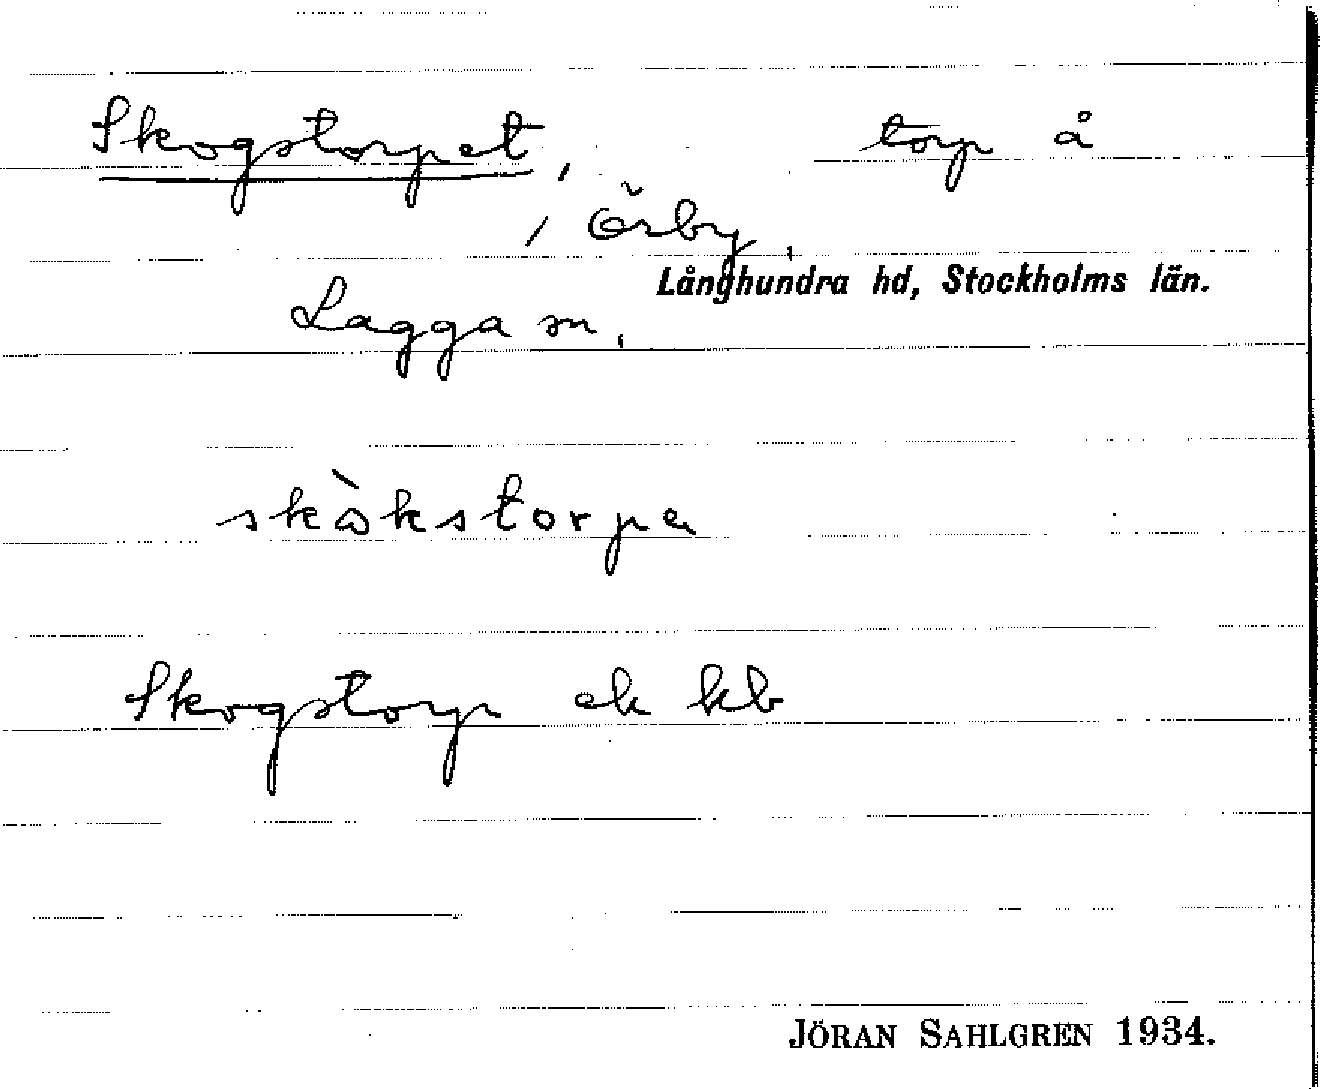 Skogstorpet, torp å
/ Örby,
Långhundra hd, Stockholms län.
Lagga sn,
skòkstorpa
Skogstorp ek kb
JÖRAN SAHLGREN 1934.